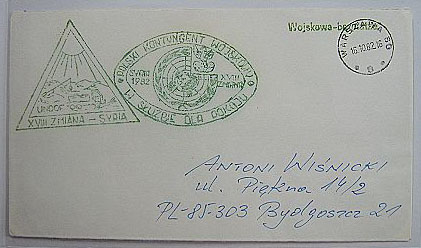 UNDOF
XVIII ZMIANA – SYRIA
POLSKI KONTYNGENT WOJSKOWY
SYRIA
1982
XVIII
ZMIANA
W SŁUŻBIE DLA POKOJU
Wojskowa-bezpłatna
WARSZAWA 60
16.10.82.16
a
ANTONI WIŚNICKI
ul. Piękna 14/2
PL-85-303 Bydgoszcz 21